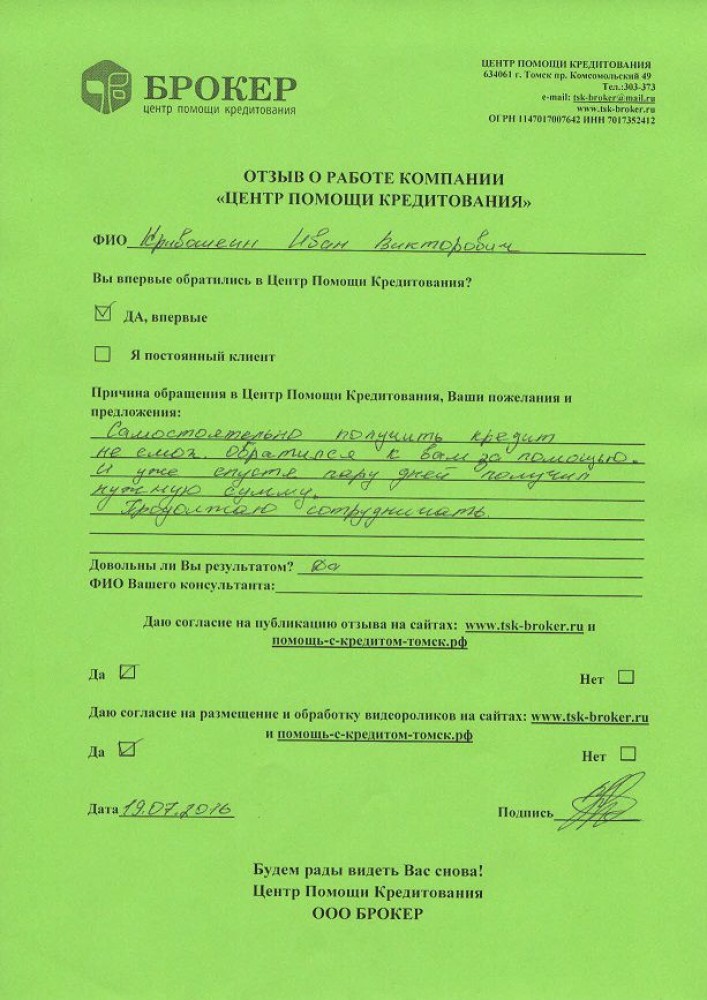 БРОКЕР
центр помощи кредитования
ЦЕНТР ПОМОЩИ КРЕДИТОВАНИЯ
634061 г. Томск пр. Комсомольский 49
Тел.:303-373
e-mail: tsk-broker@mail.ru
www.tsk-broker.ru
ОГРН 1147017007642 ИНН 7017352412
ОТЗЫВ О РАБОТЕ КОМПАНИИ
«ЦЕНТР ПОМОЩИ КРЕДИТОВАНИЯ»
ФИО Кривошеин Иван Викторович
Вы впервые обратились в Центр Помощи Кредитования?
ДА, впервые
Я постоянный клиент
Причина обращения в Центр Помощи Кредитования, Ваши пожелания и
предложения:
Самостоятельно получить кредит
не смог. Обратился к вам за помощью.
И уже спустя пару дней получил
нужную сумму.
Продолжаю сотрудничать.
Довольны ли Вы результатом? Да
ФИО Вашего консультанта:
Даю согласие на публикацию отзыва на сайтах: www.tsk-broker.ru и
помощь-с-кредитом-томск.рф
Да Нет
Даю согласие на размещение и обработку видеороликов на сайтах: www.tsk-broker.ru
и помощь-с-кредитом-томск.рф
Да Нет
Дата 19.07.2016 Подпись
Будем рады видеть Вас снова!
Центр Помощи Кредитования
ООО БРОКЕР